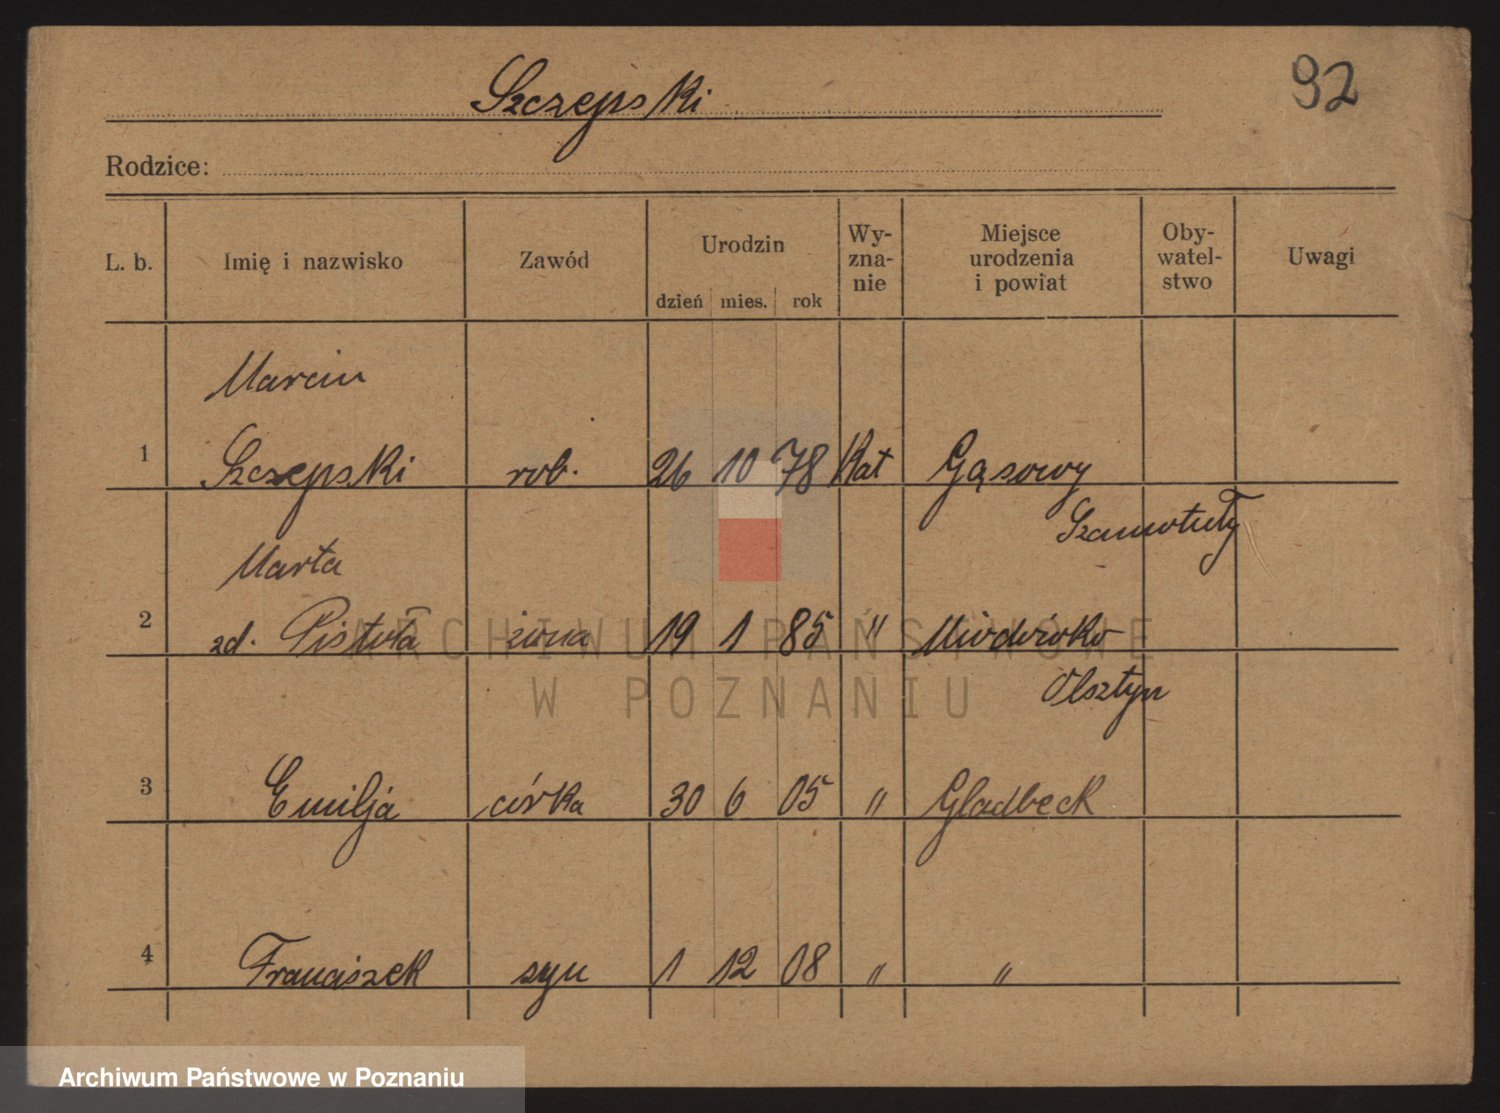 92
Szczepski
Rodzice:
L. b. Imię i nazwisko Zawód Urodzin dzień mies. rok Wy-zna-nie Miejsce urodzenia i powiat Oby-watel-stwo Uwagi
Marcin
1 Szczepski rob. 26 10 78 Kat Gąsowy
Szamotuły
Marta
2 zd. Pistoła żona 19 1 85 " Miodówko
Olsztyn
3 Emilja córka 30 6 05 " Gladbeck
4 Franciszek syn 1 12 08 " "
ARCHIWUM PAŃSTWOWE
W POZNANIU
Archiwum Państwowe w Poznaniu